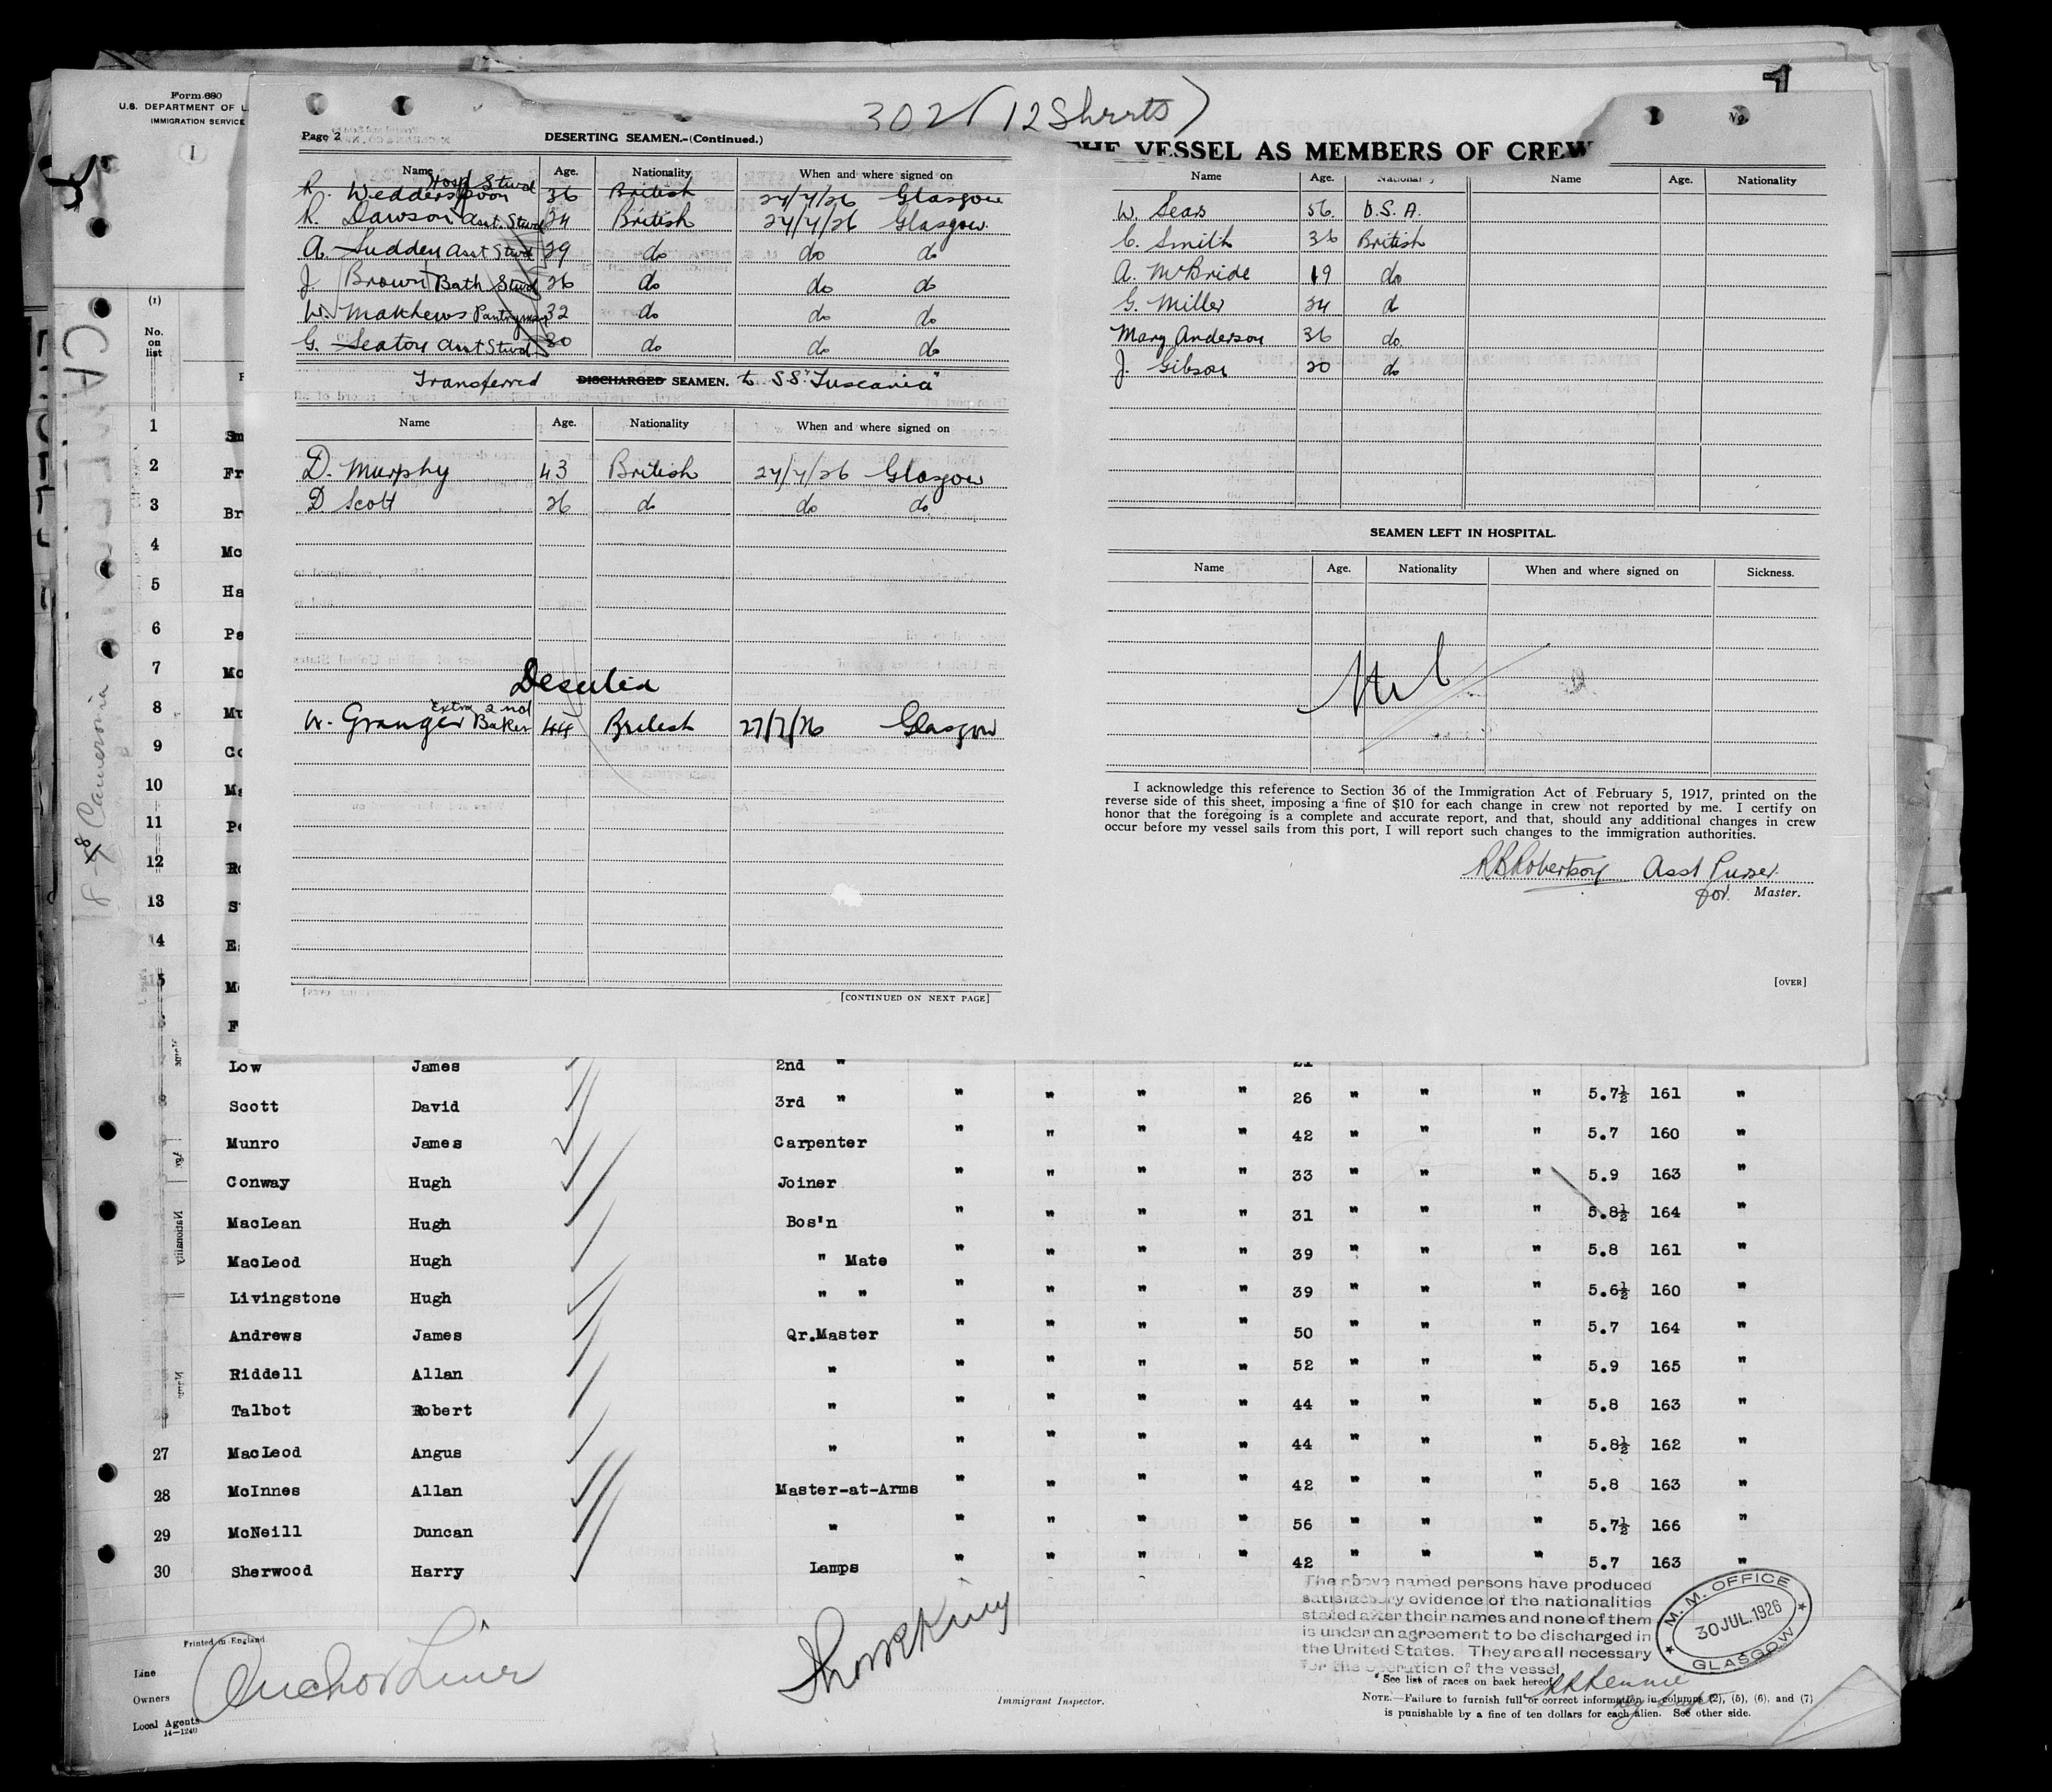 Form 680
U.S. DEPARTMENT OF L
IMMIGRATION SERVICE
1
302 (12 Sheets)
Page 2
DESERTING SEAMEN.—(Continued.)
Name Age. Nationality When and where signed on
R. Wedderspoon Hosp Stwd 36 British 27/7/26 Glasgow
R. Dawson Asst. Stwd 24 British 27/7/26 Glasgow
A. Sudden Asst Stwd 29 do do do
J. Brown Bath Stwd 26 do do do
W. Matthews Pantryman 32 do do do
G. Seaton Asst Stwd 30 do do do
Transferred DISCHARGED SEAMEN. to S.S. "Tuscania"
Name Age. Nationality When and where signed on
D. Murphy 43 British 27/7/26 Glasgow
D Scott 26 do do do
Deserted
W. Granger Extra 2nd Baker 44 British 27/7/26 Glasgow
[CONTINUED ON NEXT PAGE]
No.
HE VESSEL AS MEMBERS OF CREW
Name Age. Nationality Name Age. Nationality
W. Sears 56. U.S.A.
C. Smith 36 British
A. McBride 19 do
G. Miller 24 d
Mary Anderson 36 do.
J. Gibson 20 do
SEAMEN LEFT IN HOSPITAL.
Name Age. Nationality When and where signed on Sickness.
Nil
I acknowledge this reference to Section 36 of the Immigration Act of February 5, 1917, printed on the
reverse side of this sheet, imposing a fine of $10 for each change in crew not reported by me. I certify on
honor that the foregoing is a complete and accurate report, and that, should any additional changes in crew
occur before my vessel sails from this port, I will report such changes to the immigration authorities.
R B Robertson Asst Purser
for Master.
[OVER]
Cameronia
(1)
No.
on
list
1 Sm
2 Fr
3 Br
4 Mc
5 Ha
6 Pa
7 Mc
8 Mu
9 Co
10 Ma
11 Pe
12 Ro
13 S
14 E
15 Mc
F
Low James 2nd " 21
Scott David 3rd " " " " " 26 " " " 5.7½ 161 "
Munro James Carpenter " " " " 42 " " " 5.7 160 "
Conway Hugh Joiner " " " " 33 " " " 5.9 163 "
MacLean Hugh Bos'n " " " " 31 " " " 5.8½ 164 "
MacLeod Hugh " Mate " " " " 39 " " " 5.8 161 "
Livingstone Hugh " " " " " " 39 " " " 5.6½ 160 "
Andrews James Qr.Master " " " " 50 " " " 5.7 164 "
Riddell Allan " " " " " 52 " " " 5.9 165 "
Talbot Robert " " " " " 44 " " " 5.8 163 "
27 MacLeod Angus " " " " " 44 " " " 5.8½ 162 "
28 McInnes Allan Master-at-Arms " " " " 42 " " " 5.8 163 "
29 McNeill Duncan " " " " " 56 " " " 5.7½ 166 "
30 Sherwood Harry Lamps " " " " 42 " " " 5.7 163 "
The above named persons have produced
satisfactory evidence of the nationalities
stated after their names and none of them
is under an agreement to be discharged in
the United States. They are all necessary
for the operation of the vessel
M. M. OFFICE
30 JUL. 1926
GLASGOW
Printed in England
Line
Owners
Local Agents
14—1240
Anchor Line
Immigrant Inspector.
* See list of races on back hereof
NOTE.—Failure to furnish full or correct information in columns (2), (5), (6), and (7)
is punishable by a fine of ten dollars for each alien. See other side.